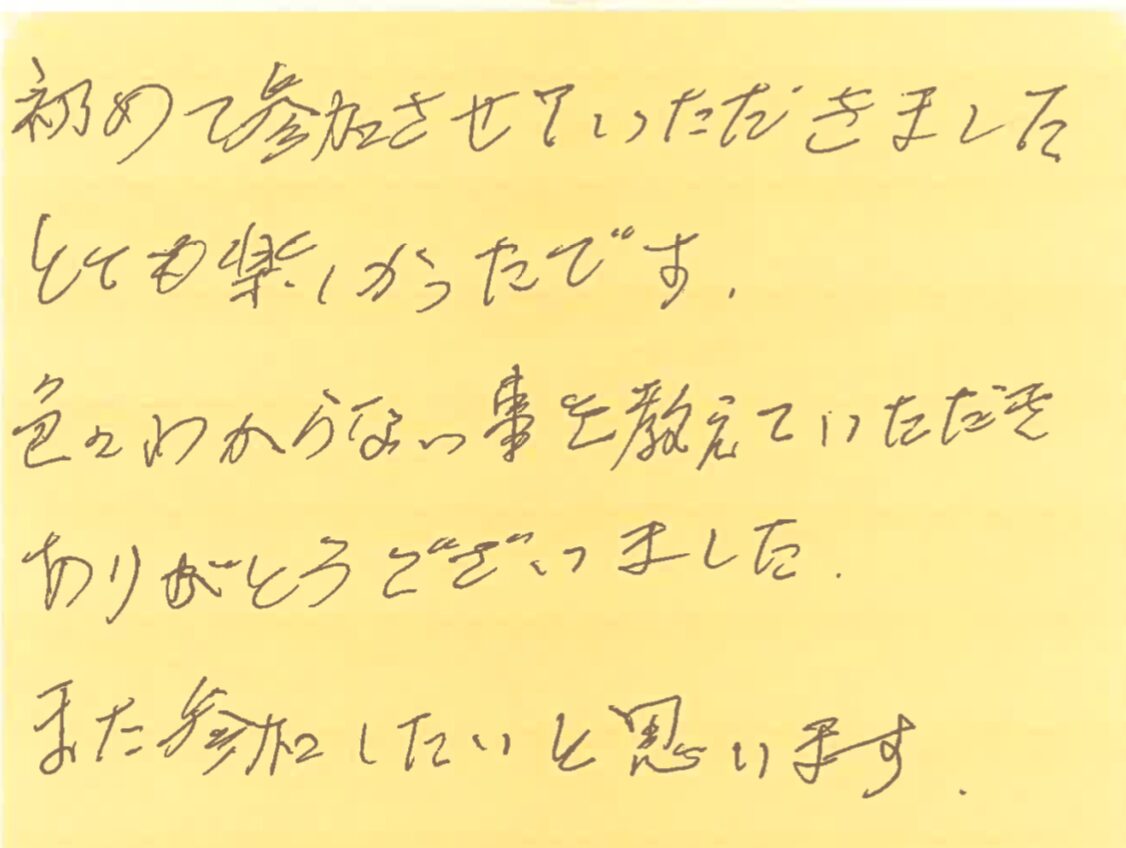 初めて参加させていただきました
とても楽しかったです.
色々わからない事を教えていただき
ありがとうございました.
また参加したいと思います.